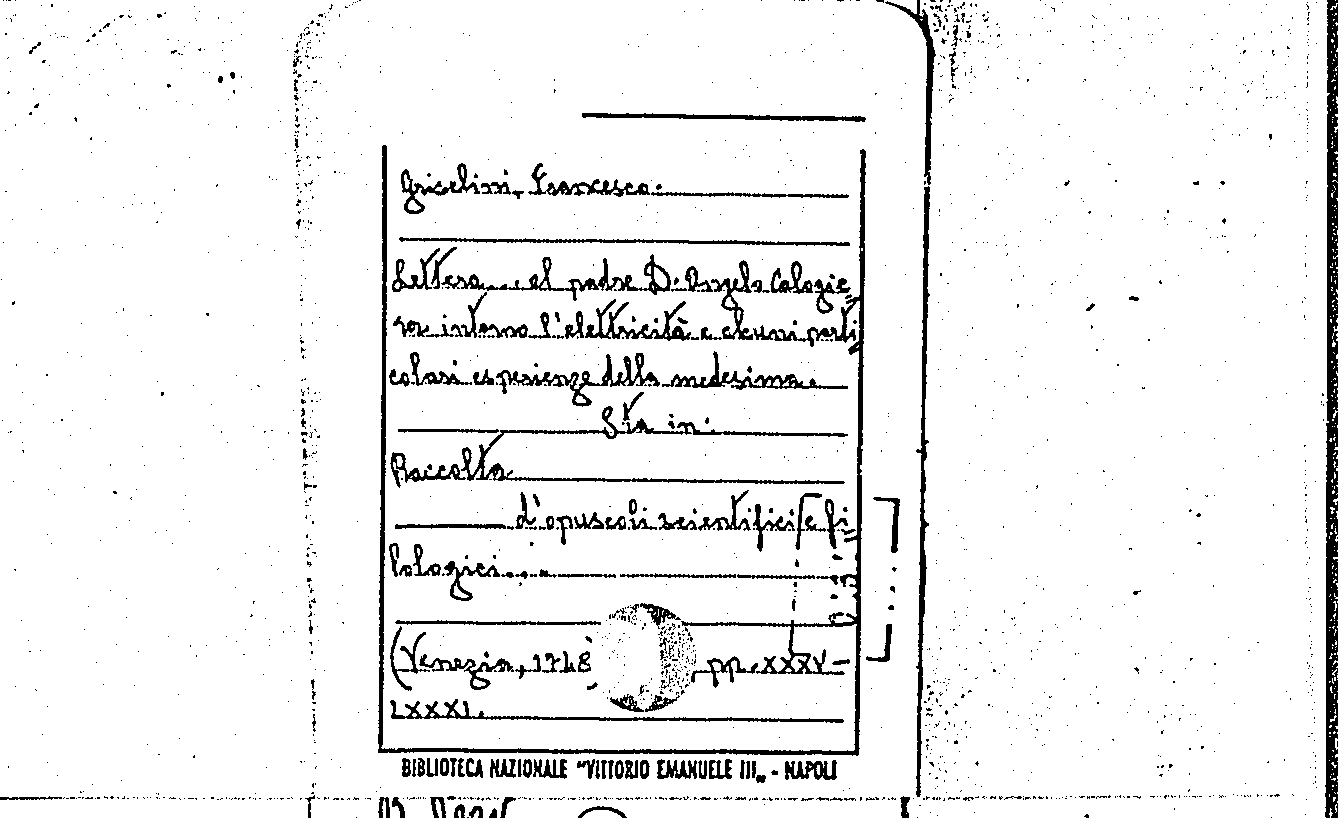 Griselini, Francesco.
Lettera... al padre D. Angelo Calogie=
ra intorno l'elettricità e alcuni parti=
colari esperienze della medesima.
Sta in:
Raccolta
d'opuscoli scientifici e fi=
lologici...
(Venezia, 1748) pp. XXXV-
LXXXI.
BIBLIOTECA NAZIONALE "VITTORIO EMANUELE III„ - NAPOLI